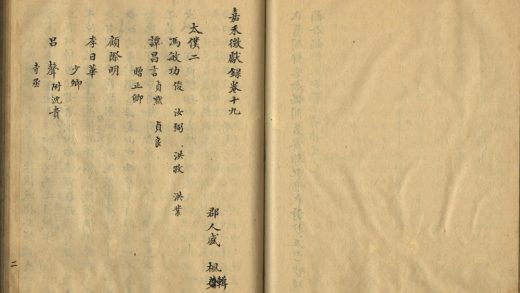 嘉禾徵獻録卷十九
郡人盛 楓 輯
太僕二
馮敏功 俊 汝弼 洪孜 洪業
譚昌言 貞默 貞良
贈正卿
顧際明
李日華
少卿
呂聲 附沈貴
寺丞
二